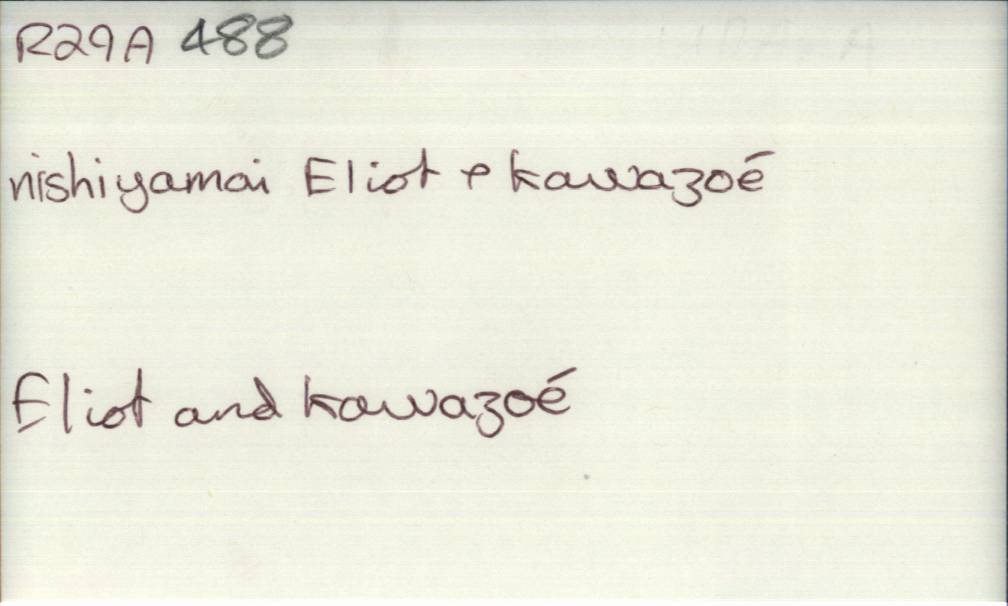 R29A 488
nishiyamai Eliot & Kawazoé
Eliot and Kawazoé